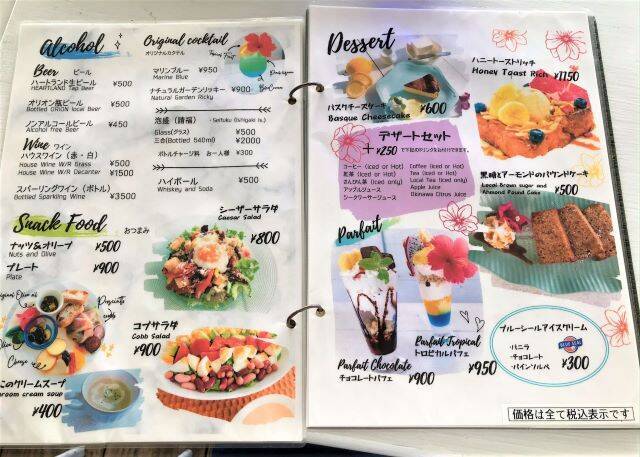 Alcohol
Beer ビール
ハートランド生ビール ¥500
HEARTLAND Tap Beer
オリオン瓶ビール ¥500
Bottled ORION local Beer
ノンアルコールビール ¥450
Alcohol free Beer
Wine ワイン
ハウスワイン(赤・白)
House Wine W/R Grass ¥500
House Wine W/R Decanter ¥1500
スパーリングワイン(ボトル)
Bottled Sparkling Wine ¥3500
Original cocktail
オリジナルカクテル
マリンブルー ¥950
Marine Blue
ナチュラルガーデンリッキー ¥900
Natural Garden Ricky
泡盛(請福)
Glass(グラス) ¥500
三合(Bottled 540ml) ¥2000
ボトルチャージ料 お一人様 ¥300
ハイボール ¥500
Whiskey and Soda
Snack Food おつまみ
ナッツ&オリーブ ¥500
Nuts and Olive
プレート ¥900
Plate
シーザーサラダ
Caesar Salad
¥800
コブサラダ
Cobb Salad
¥900
このクリームスープ
room cream soup
¥400
Dessert
バスクチーズケーキ ¥600
Basque Cheesecake
デザートセット
+¥250
コーヒー (Iced or Hot) Coffee (Iced or Hot)
紅茶 (Iced or Hot) Tea (Iced or Hot)
さんぴん茶 (Iced only) Local Tea (Iced only)
アップルジュース Apple Juice
シークワーサージュース Okinawa Citrus Juice
ハニートーストリッチ
Honey Toast Rich ¥1150
黒糖とアーモンドのパウンドケーキ
Local Brown sugar and
Almond Pound Cake ¥500
Parfait
Parfait Chocolate
チョコレートパフェ ¥900
Parfait Tropical
トロピカルパフェ
¥950
ブルーシールアイスクリーム
・バニラ
・チョコレート
・パインソルベ ¥300
BLUE SEAL
価格は全て税込表示です